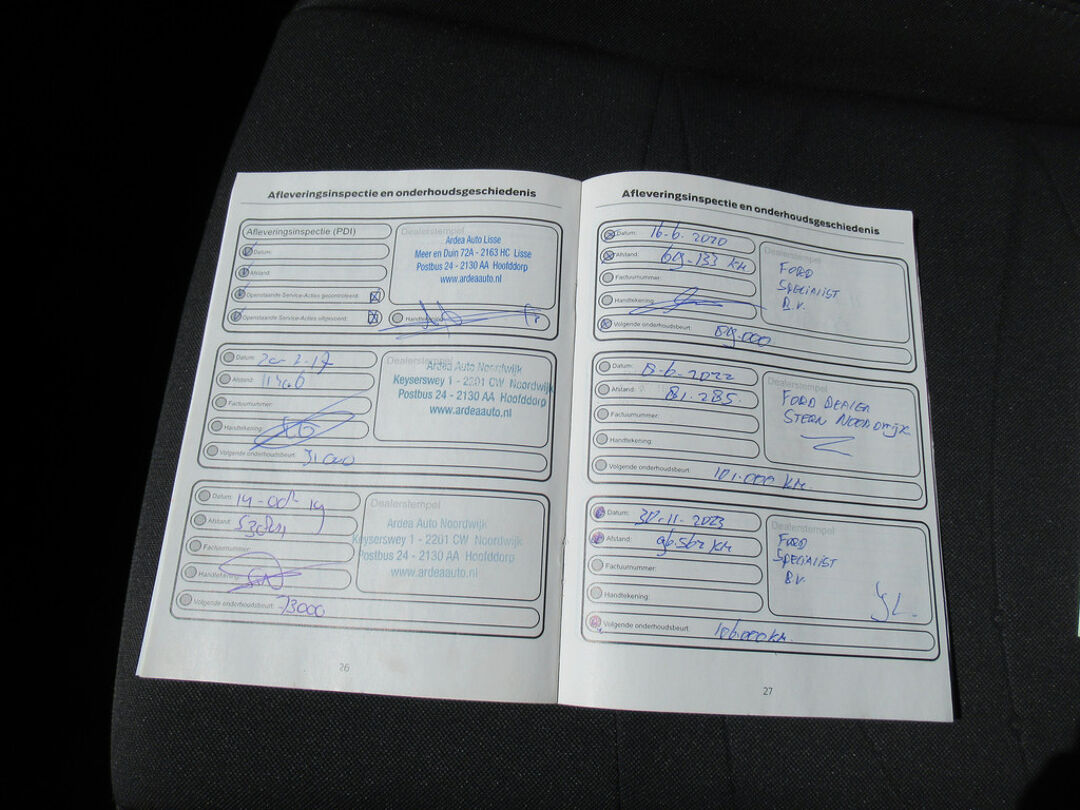 Afleveringsinspectie en onderhoudsgeschiedenis
Afleveringsinspectie (PDI)
Datum:
Afstand:
Openstaande Service-Acties gecontroleerd:
Openstaande Service-Acties uitgevoerd:
Dealerstempel
Ardea Auto Lisse
Meer en Duin 72A - 2163 HC Lisse
Postbus 24 - 2130 AA Hoofddorp
www.ardeaauto.nl
Handtekening:
Datum:
Afstand:
Factuurnummer:
Handtekening:
Volgende onderhoudsbeurt: 31000
Dealerstempel
Ardea Auto Noordwijk
Keyserswey 1 - 2201 CW Noordwijk
Postbus 24 - 2130 AA Hoofddorp
www.ardeaauto.nl
Datum: 14-oct-19
Afstand:
Factuurnummer:
Handtekening:
Volgende onderhoudsbeurt: 73000
Dealerstempel
Ardea Auto Noordwijk
Keyserswey 1 - 2201 CW Noordwijk
Postbus 24 - 2130 AA Hoofddorp
www.ardeaauto.nl
26
Afleveringsinspectie en onderhoudsgeschiedenis
Datum: 16-6-2020
Afstand: 69-133 km
Factuurnummer:
Handtekening:
Volgende onderhoudsbeurt: 89.000
Dealerstempel
FORD
SPECIALIST
B.V.
Datum: 8-6-2022
Afstand: 81.285
Factuurnummer:
Handtekening:
Volgende onderhoudsbeurt: 101.000 km.
Dealerstempel
FORD DEALER
STERN NOORDWIJK
Datum: 30-11-2023
Afstand: 96.562 km
Factuurnummer:
Handtekening:
Volgende onderhoudsbeurt: 116.000 km.
Dealerstempel
FORD
SPECIALIST
B.V.
27